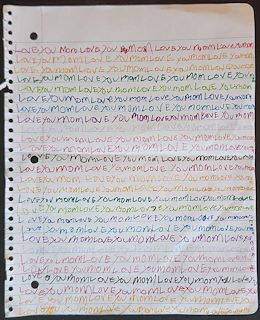 LOVE YOU MOM LOVE YOU MOM LOVE YOU MOM LOVE YOU MOM
LOVE YOU MOM LOVE YOU MOM LOVE YOU MOM LOVE YOU
LOVE YOU MOM LOVE YOU MOM LOVE YOU MOM LOVE YOU
LOVE YOU MOM LOVE YOU MOM LOVE YOU MOM LOVE YOU
LOVE YOU MOM LOVE YOU MOM LOVE YOU MOM LOVE YOU
LOVE YOU MOM LOVE YOU MOM LOVE YOU MOM LOVE YOU
LOVE YOU MOM LOVE YOU MOM LOVE YOU MOM LOVE YOU
LOVE YOU MOM LOVE YOU MOM LOVE YOU MOM LOVE YOU
LOVE YOU MOM LOVE YOU MOM LOVE YOU MOM LOVE YOU
LOVE YOU MOM LOVE YOU MOM LOVE YOU MOM LOVE YOU
LOVE YOU MOM LOVE YOU MOM LOVE YOU MOM LOVE YOU
LOVE YOU MOM LOVE YOU MOM LOVE YOU MOM LOVE YOU
LOVE YOU MOM LOVE YOU MOM LOVE YOU MOM LOVE YOU
LOVE YOU MOM LOVE YOU MOM LOVE YOU MOM LOVE YOU
LOVE YOU MOM LOVE YOU MOM LOVE YOU MOM LOVE YOU
LOVE YOU MOM LOVE YOU MOM LOVE YOU MOM LOVE YOU
LOVE YOU MOM LOVE YOU MOM LOVE YOU MOM LOVE YOU
LOVE YOU MOM LOVE YOU MOM LOVE YOU MOM LOVE YOU
LOVE YOU MOM LOVE YOU MOM LOVE YOU MOM LOVE YOU
LOVE YOU MOM LOVE YOU MOM LOVE YOU MOM LOVE YOU
LOVE YOU MOM LOVE YOU MOM LOVE YOU MOM LOVE YOU
LOVE YOU MOM LOVE YOU MOM LOVE YOU MOM LOVE YOU
LOVE YOU MOM LOVE YOU MOM LOVE YOU MOM LOVE YOU
LOVE YOU MOM LOVE YOU MOM LOVE YOU MOM LOVE YOU
LOVE YOU MOM LOVE YOU MOM LOVE YOU MOM LOVE YOU
LOVE YOU MOM LOVE YOU MOM LOVE YOU MOM LOVE YOU